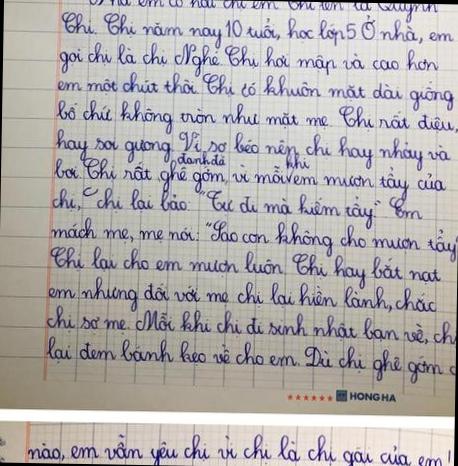 nhà em có hai chị em. Chị tên là Quỳnh
Chi. Chị năm nay 10 tuổi, học lớp 5. Ở nhà, em
gọi chị là chị Nghé. Chị hơi mập và cao hơn
em một chút thôi. Chị có khuôn mặt dài giống
bố chứ không tròn như mặt mẹ. Chị rất điệu,
hay soi gương. Vì sợ béo nên chị hay nhảy và
đanh đá khi
bơi. Chị rất ghê gớm, vì mỗi em mượn tẩy của
chị, chị lại bảo: "Tự đi mà kiếm tẩy." Em
mách mẹ, mẹ nói: "Sao con không cho mượn tẩy
Chị lại cho em mượn luôn. Chị hay bắt nạt
em nhưng đối với mẹ chị lại hiền lành, chắc
chị sợ mẹ. Mỗi khi chị đi sinh nhật bạn về, ch
lại đem bánh kẹo về cho em. Dù chị ghê gớm
HONG HA
nào, em vẫn yêu chị vì chị là chị gái của em!